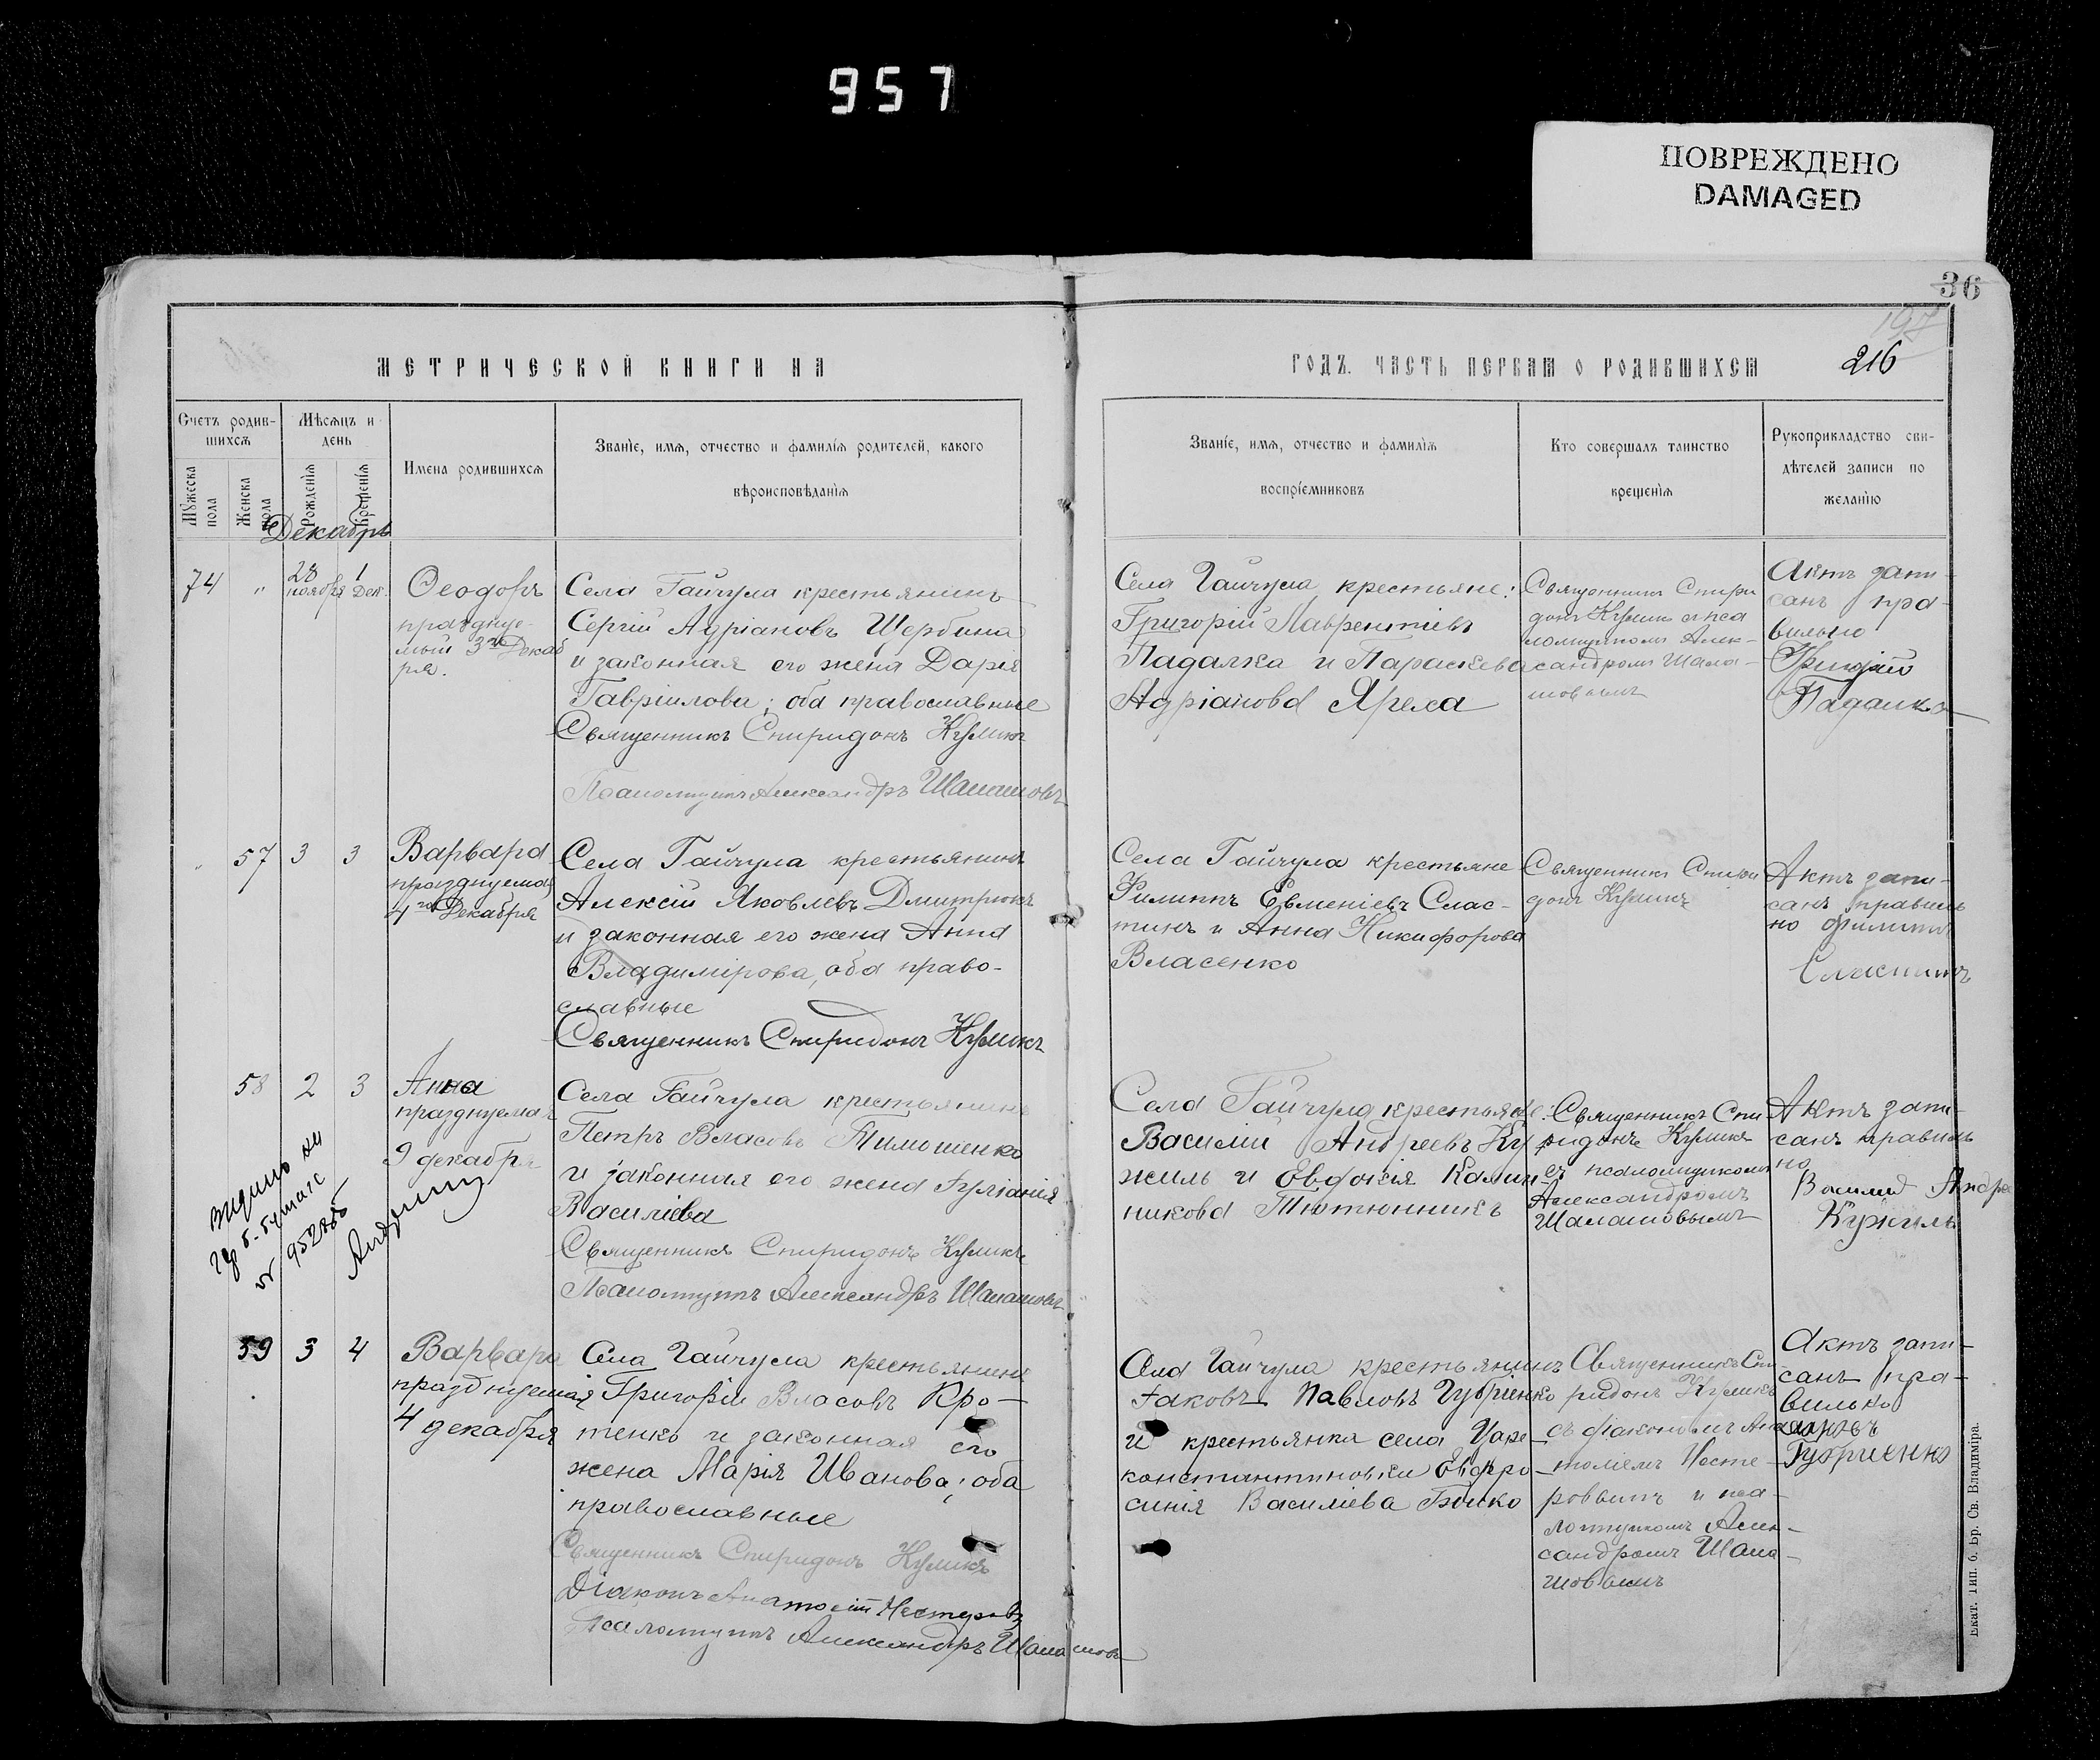 957
ПОВРЕЖДЕНО
DAMAGED
36
197
216
МЕТРИЧЕСКОЙ КНИГИ НА
ГОДЪ. ЧАСТЬ ПЕРВАЯ О РОДИВШИХСЯ
Счетъ родив-
шихся
Мужеска пола
Женска пола
Мѣсяцъ и
день
Рожденія
Крещенія
Имена родившихся
Званіе, имя, отчество и фамилія родителей, какого
вѣроисповѣданія
Званіе, имя, отчество и фамилія
воспріемниковъ
Кто совершалъ таинство
крещенія
Рукоприкладство сви-
дѣтелей записи по
желанію
Декабрь
74
"
28 ноября
1 Дек.
Ѳеодоръ
празднуе-
мый 3го Декаб
ря.
Села Гайчула крестьянинъ
Сергій Адріановъ Щербина
и законная его жена Дарія
Гавріилова; оба православные
Священникъ Спиридонъ Куликъ
Псаломщикъ Александръ Шалашовъ
Села Гайчула крестьяне:
Григорій Лаврентіевъ
Падалка и Параскева
Адріанова Ярема
Священникъ Спири
донъ Куликъ съ пса
ломщикомъ Алек-
сандромъ Шала-
шовымъ
Актъ запи-
санъ пра-
вильно
Григорій
Падалка
"
57
3
3
Варвара
празднуемая
4го Декабря
Села Гайчула крестьянинъ
Алексій Яковлевъ Дмитрюкъ
и законная его жена Анна
Владимірова, оба право-
славные
Священникъ Спиридонъ Куликъ
Села Гайчула крестьяне
Филиппъ Евменіевъ Слас-
тинъ и Анна Никифорова
Власенко
Священникъ Спири
донъ Куликъ
Актъ запи-
санъ правиль
но Филиппъ
Сластинъ
58
2
3
Анна
празднуемая
9 декабря
Села Гайчула крестьянинъ
Петръ Власовъ Тимошенко
и законная его жена Іуліанія
Василіева
Священникъ Спиридонъ Куликъ
Псаломщикъ Александръ Шалашовъ
Села Гайчула крестьяне:
Василій Андреевъ Ку
жиль и Евдокія Калин
никова Тютюнникъ
Священникъ Спи
ридонъ Куликъ
съ псаломщикомъ
Александромъ
Шалашовымъ
Актъ запи-
санъ правиль
но
Василий Андре
Кужиль
видано на
б. бумазе
№ 952885
59
3
4
Варвара
празднуемая
4 декабря
Села Гайчула крестьянинъ
Григорій Власовъ Кро-
тенко и законная его
жена Марія Иванова; оба
православные
Священникъ Спиридонъ Куликъ
Діаконъ Анатолій Нестеровъ
Псаломщикъ Александръ Шалашовъ
Села Гайчула крестьянинъ
Іаковъ Павловъ Губріенко
и крестьянка села Царе-
константиновки Евфро-
синія Василіева Бойко
Священникъ Спи
ридонъ Куликъ
съ діакономъ Ана
толіемъ Несте-
ровымъ и пса-
ломщикомъ Алек-
сандромъ Шала-
шовымъ
Актъ запи-
санъ пра-
вильно
Яковъ
Губриенко
Екат. Тип. б. Бр. Св. Владиміра.